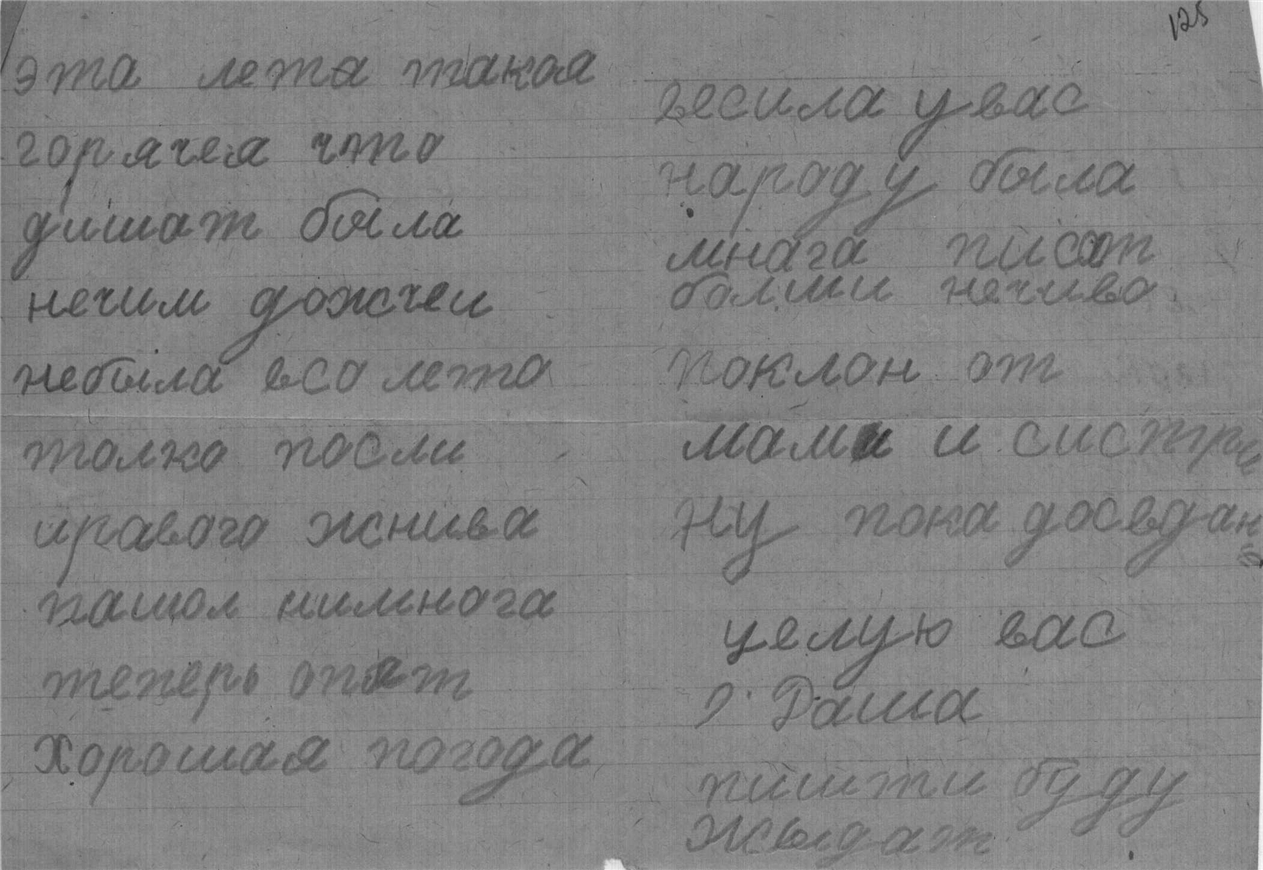 125
эта лета такая
горячея что
дишат была
нечим дожчеи
небыла всо лето
толко посли
яравого жнива
пашол нимнога
теперь опят
хорошая погода
весила у вас
народу была
мнага писат
болши нечиво
поклон от
мами и систри
ну пока досвдан
целую вас
Даша
пишти буду
жыдат